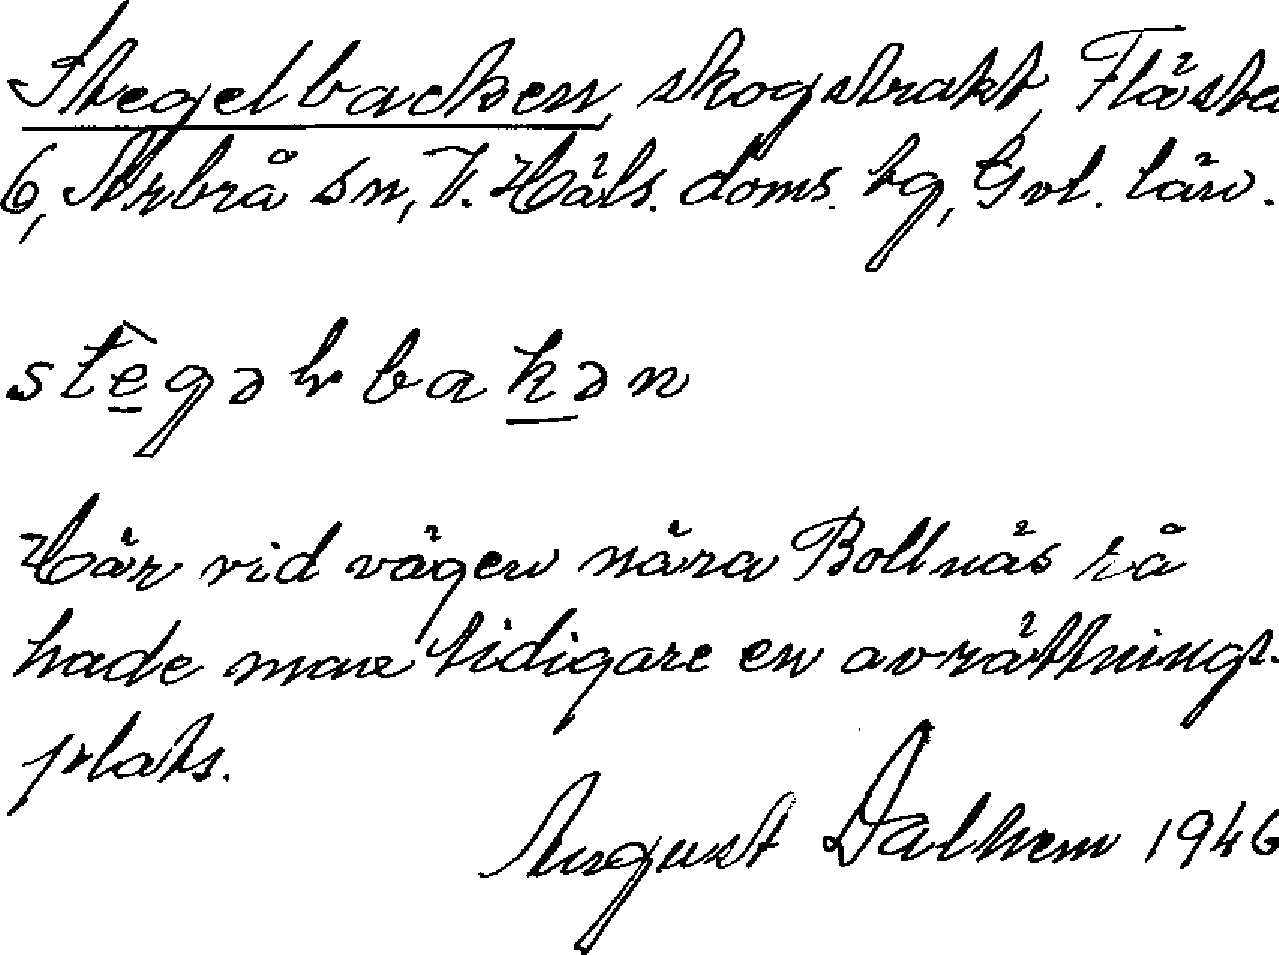 Stegelbacken, skogstrakt, Flästa
6, Arbrå sn, V. Häls. doms. tg, Gvl. län.
stegəɫbakən
Här vid vägen nära Bollnäs rå
hade man tidigare en avrättnings-
plats.
August Dalhem 1946